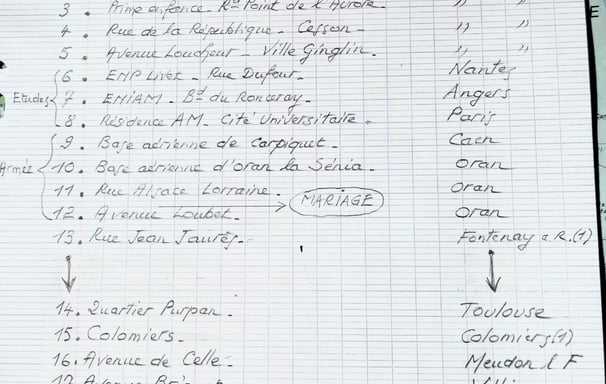 3. Prime enfance - Rd Point de l'Aurore. " "
4. Rue de la République - Cesson - " "
5. Avenue Loudéur - Ville Ginglin. " "
6. ENP Livet - Rue Dufour. Nantes
Etudes 7. ENIAM - Bd du Ronceray - Angers
8. Résidence AM - Cité Universitaire. Paris
9. Base aérienne de Carpiquet. Caen
Armée 10. Base aérienne d'Oran la Sénia. Oran
11. Rue Alsace Lorraine. Oran
12. Avenue Loubet. MARIAGE Oran
13. Rue Jean Jaurès. Fontenay a R.(1)
14. Quartier Purpan. Toulouse
15. Colomiers. Colomiers(1)
16. Avenue de Celle. Meudon l F